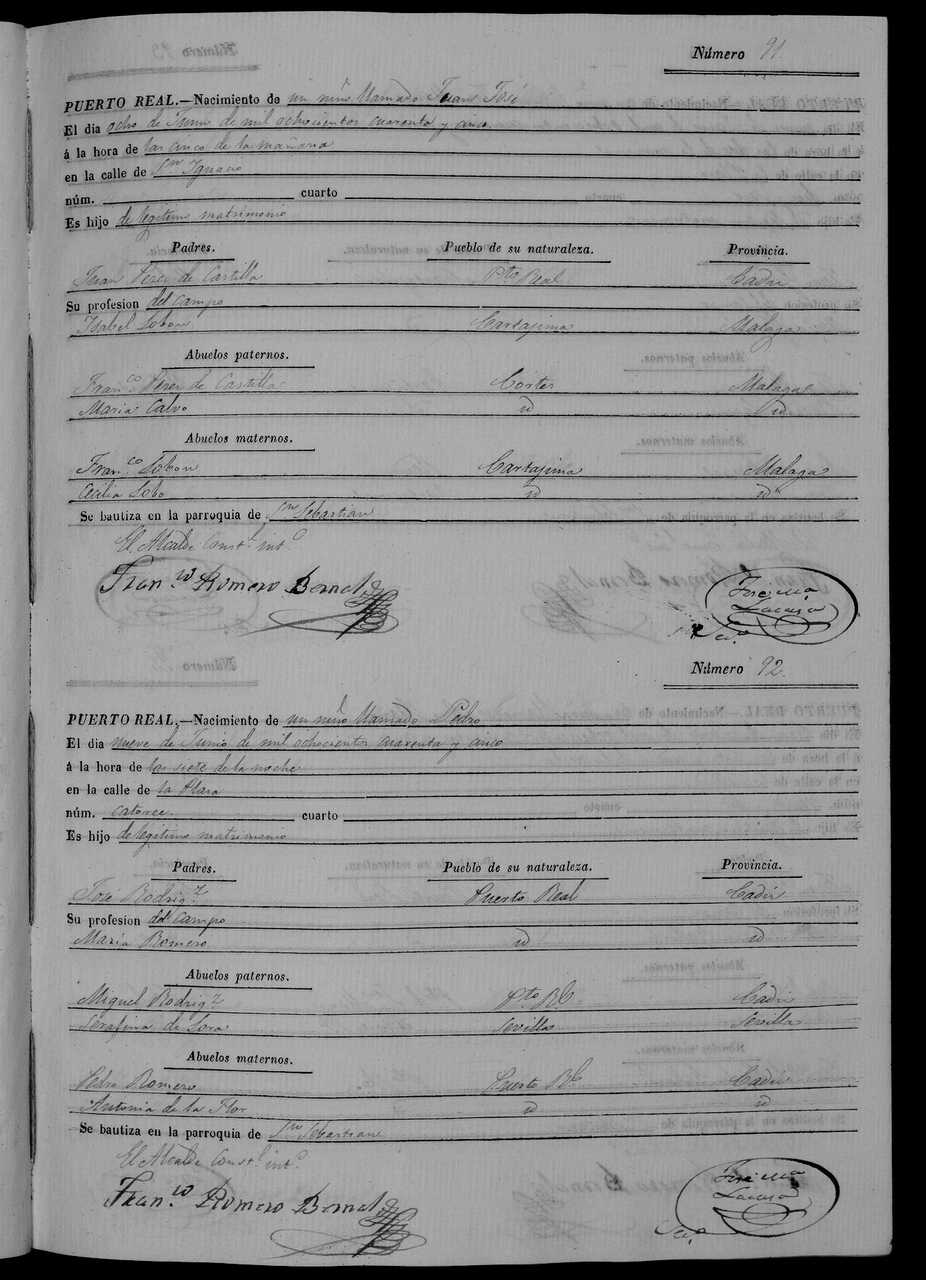 Número 91
PUERTO REAL.—Nacimiento de un niño llamado Juan José
El dia ocho de Junio de mil ochocientos cuarenta y cinco
á la hora de las cinco de la mañana
en la calle de Sn Ignacio
núm. cuarto
Es hijo de legitimo matrimonio
Padres. Pueblo de su naturaleza. Provincia.
Juan Perez de Castilla Pto Real Cadiz
Su profesion del campo
Isabel Lobon Cartajima Malaga
Abuelos paternos.
Franco Perez de Castilla Cortes Malaga
Maria Calvo id id
Abuelos maternos.
Franco Lobon Cartajima Malaga
Cecilia Lobo id id
Se bautiza en la parroquia de Sn Sebastian
El Alcalde Constl. into
Franco Romero Bernal
José Ma
Lacasa
Sio
Número 92.
PUERTO REAL.—Nacimiento de un niño llamado Pedro
El dia nueve de Junio de mil ochocientos cuarenta y cinco
á la hora de las siete de la noche
en la calle de la Plaza
núm. catorce cuarto
Es hijo de legitimo matrimonio
Padres. Pueblo de su naturaleza. Provincia.
José Rodrigz Puerto Real Cadiz
Su profesion del campo
Maria Romero id id
Abuelos paternos.
Miguel Rodrigz Pto Rl Cadiz
Serafina de Lora Sevilla Sevilla
Abuelos maternos.
Pedro Romero Puerto Rl Cadiz
Antonia de la Flor id id
Se bautiza en la parroquia de Sn Sebastian
El Alcalde Constl. into
Franco Romero Bernal
José Ma
Lacasa
Sio